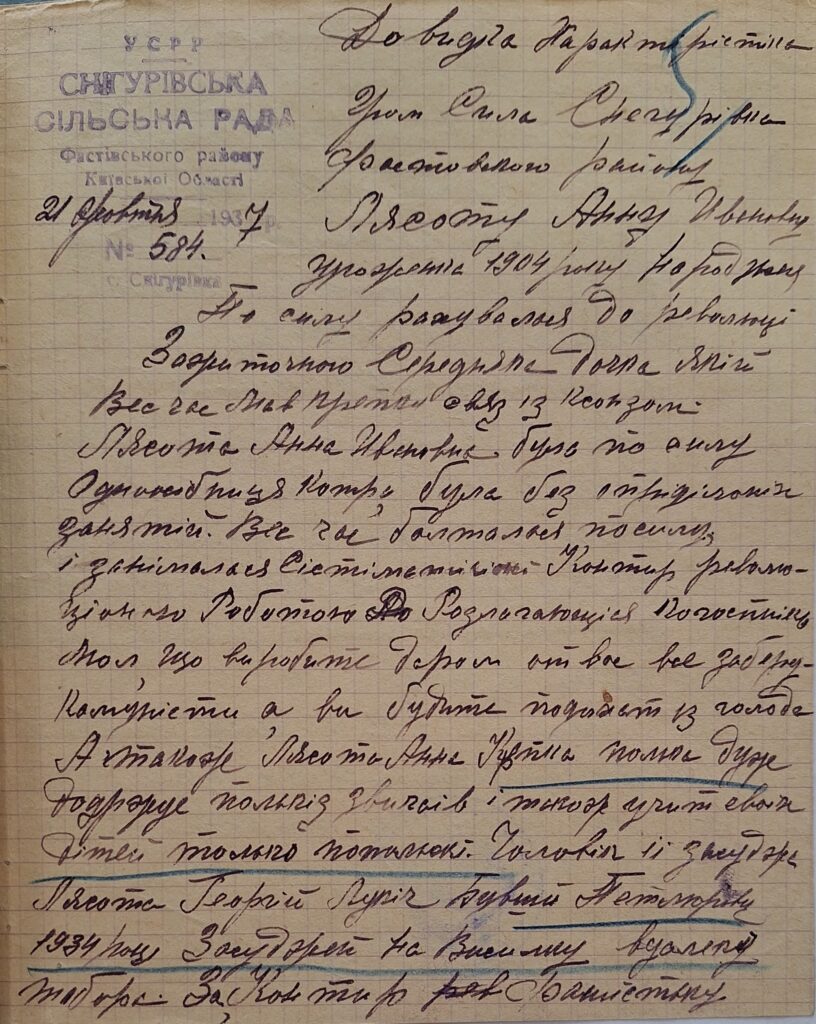 УСРР
СНІГУРІВСЬКА
СІЛЬСЬКА РАДА
Фастівського району
Київської Області
21 жовтня 1937 р.
№ 584.
с. Снігурівка
Довидка Характерістіка
Гром Сила Снегурівка
Фастовского району
Лясоту Анну Ивановну
уроженка 1904 року народженя
По силу рахувалася до революції
Зажиточного Середняка дочка якій
Весь час мав крепки связ із ксондзом.
Лясота Анна Ивановна. була по силу
Одноосібниця котра була без оприділонія
занятій. Вес час болталася посилу,
і занімалася Сістіматіческі Контр револю-
ціоною Роботою Розлагающіся
мол, що ви робите даром от вас все заберуть
Комуністи а ви будите подихат із голода
А также, Лясота Анна Крепка полька дуже
додржує польскіз звичаів і також учит своїх
дітей только попольскі. Чоловік її засуджен
Лясота Георгій Лукіч Бувший Петлюровец
1934 році Засуджен на Висилку вдалекі
табора. За Контр рев Фашистьку